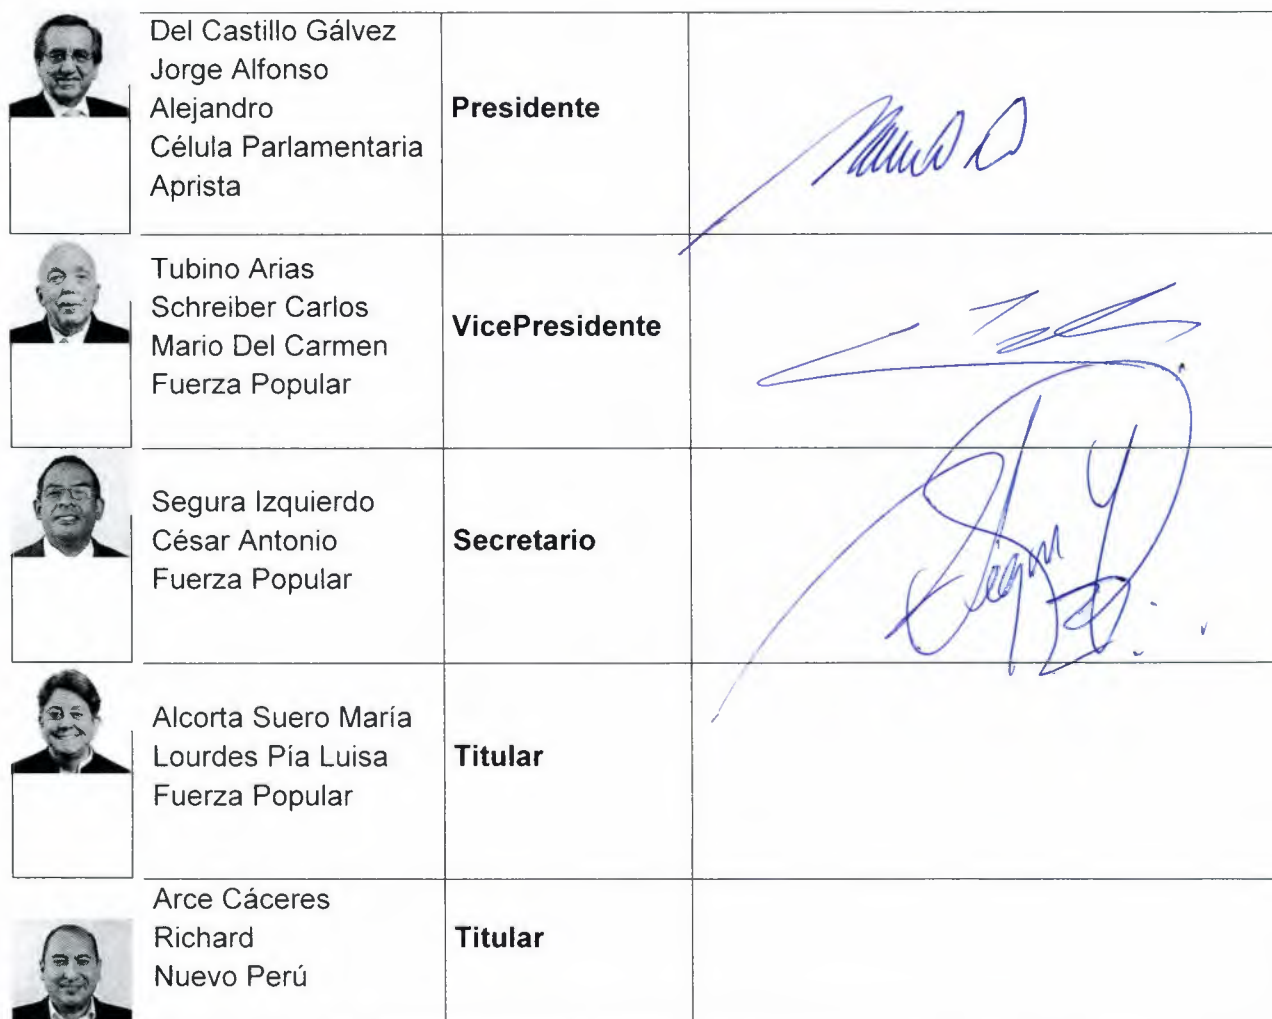 Del Castillo Gálvez
Jorge Alfonso
Alejandro
Célula Parlamentaria
Aprista
Presidente
Tubino Arias
Schreiber Carlos
Mario Del Carmen
Fuerza Popular
VicePresidente
Segura Izquierdo
César Antonio
Fuerza Popular
Secretario
Alcorta Suero María
Lourdes Pía Luisa
Fuerza Popular
Titular
Arce Cáceres
Richard
Nuevo Perú
Titular